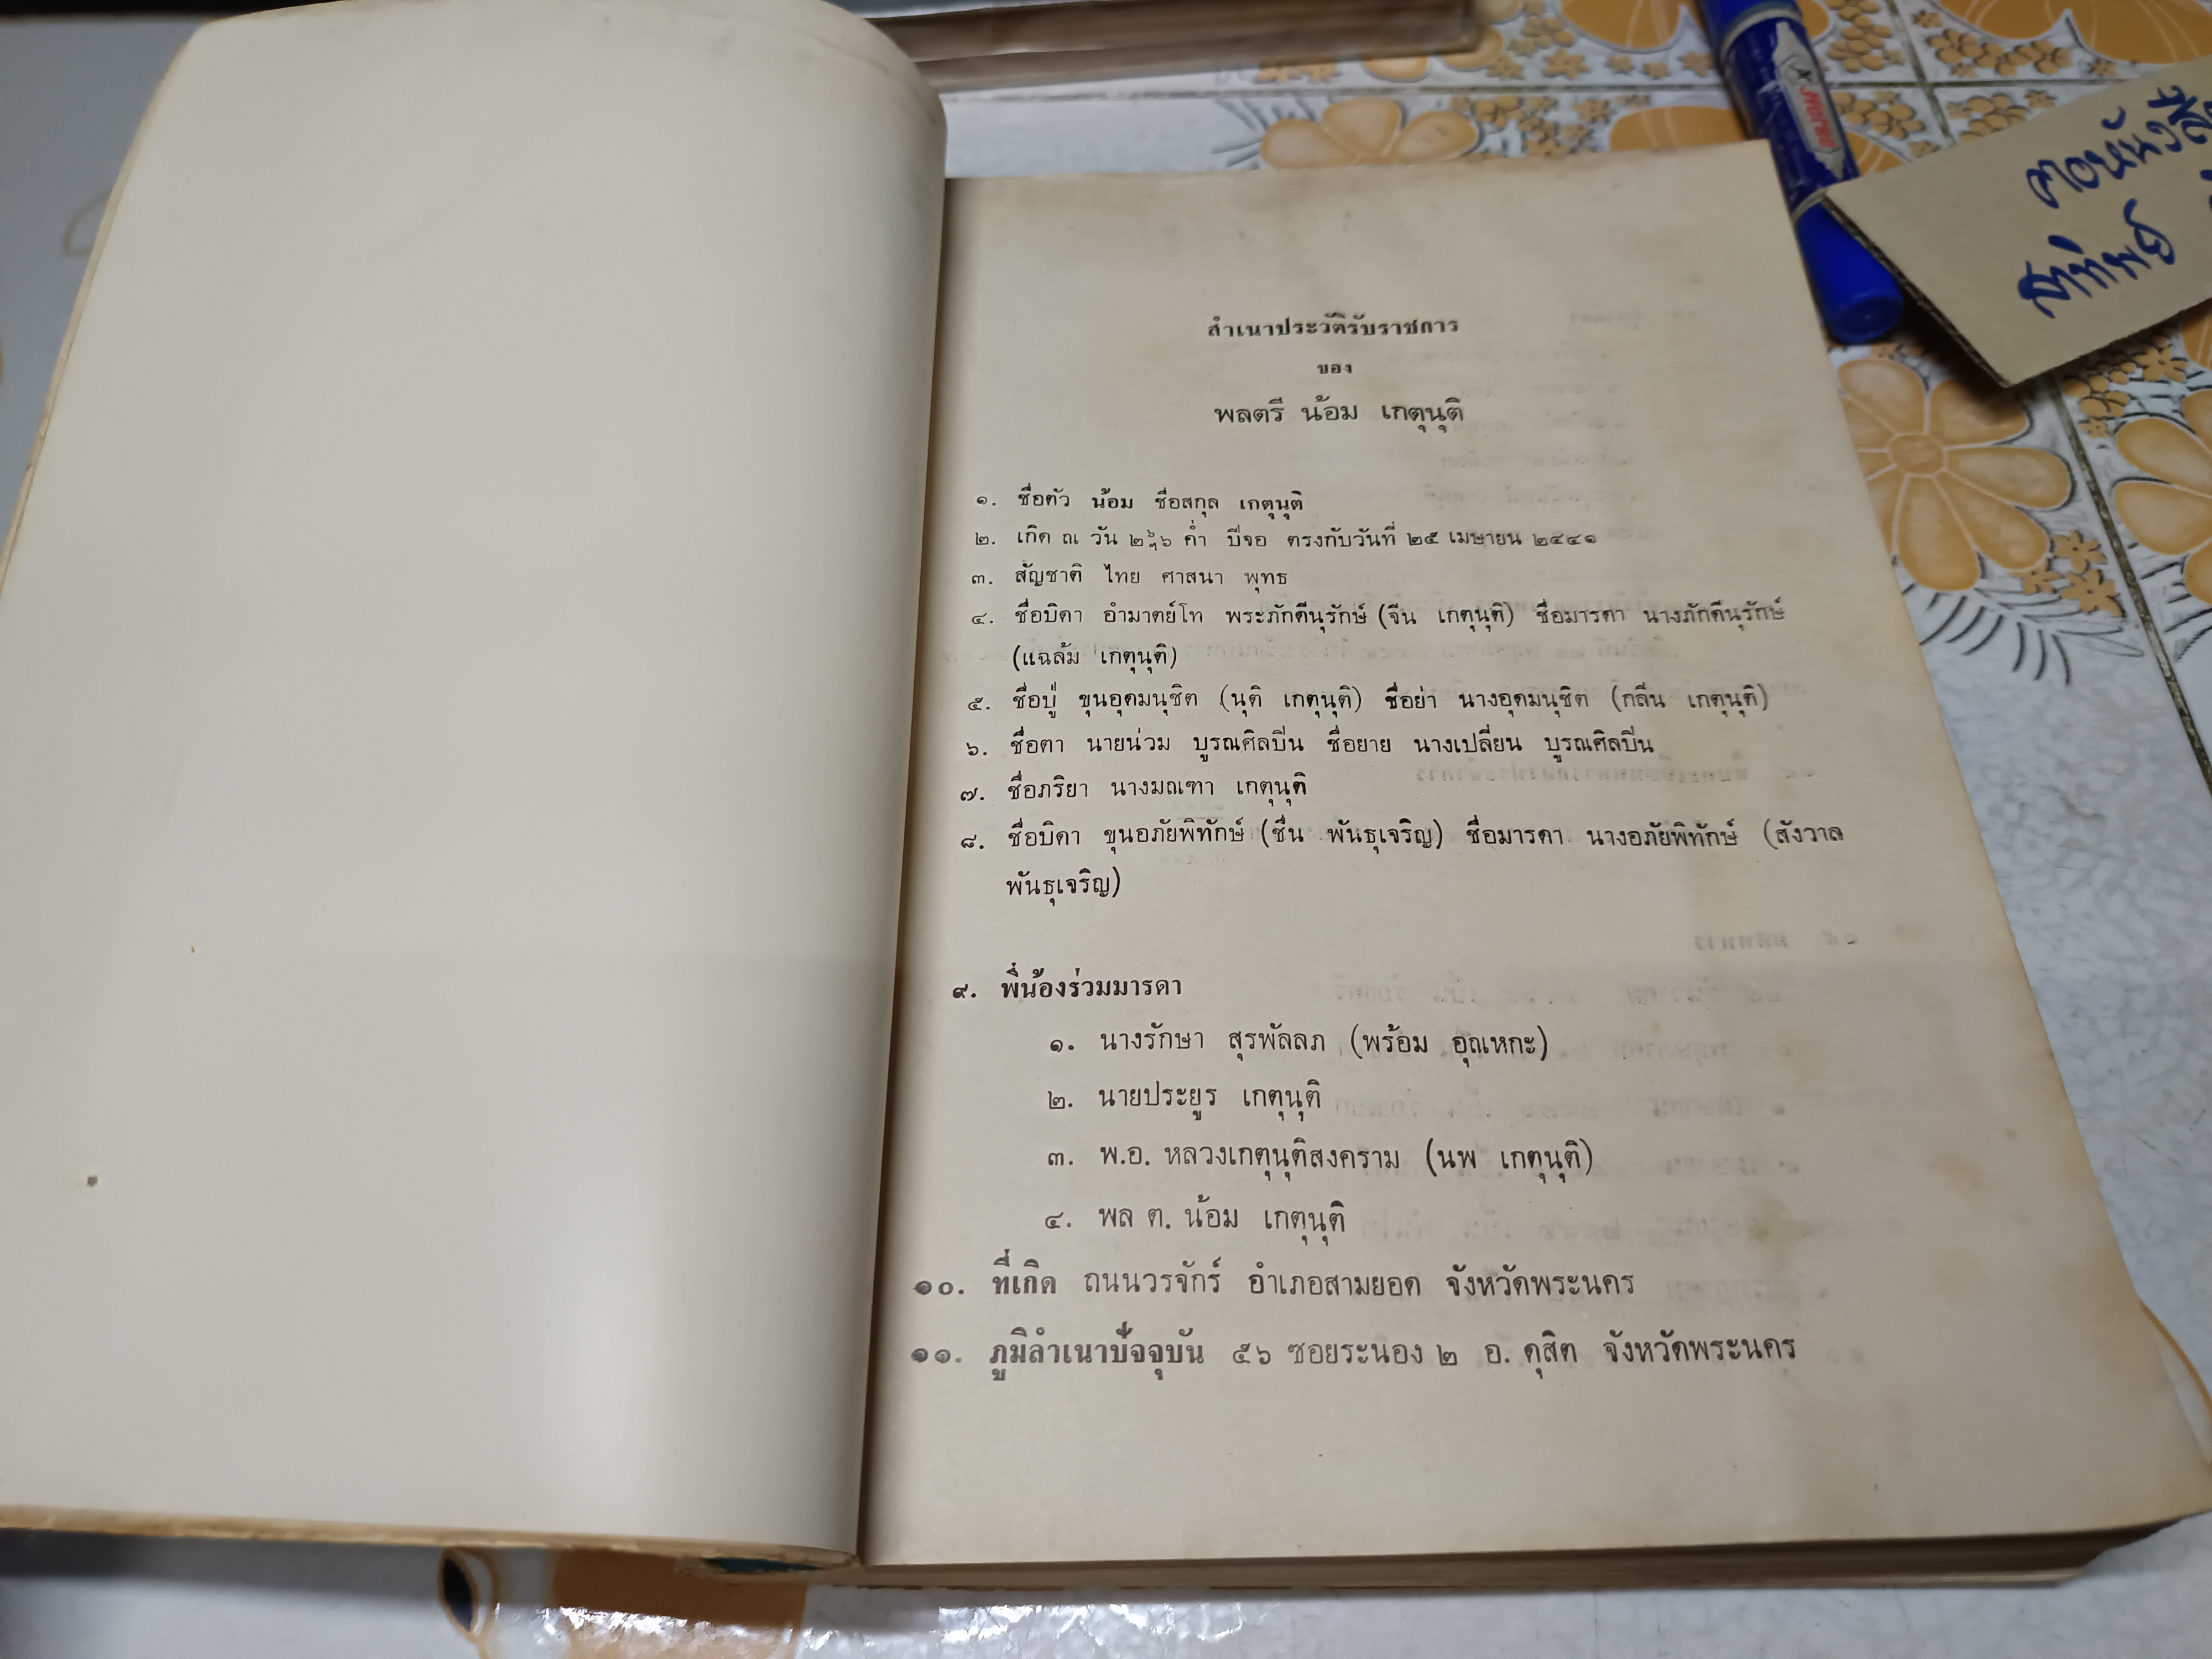 สำเนาประวัติรับราชการ
ของ
พลตรี น้อม เกตุนุติ
๑. ชื่อตัว น้อม ชื่อสกุล เกตุนุติ
๒. เกิด ณ วัน ค่ำ ปีจอ ตรงกับวันที่ ๒๕ เมษายน ๒๔๔๑
๓. สัญชาติ ไทย ศาสนา พุทธ
๔. ชื่อบิดา อำมาตย์โท พระภักดีนุรักษ์ (จีน เกตุนุติ) ชื่อมารดา นางภักดีนุรักษ์
(แฉล้ม เกตุนุติ)
๕. ชื่อปู่ ขุนอุดมนุชิต (นุติ เกตุนุติ) ชื่อย่า นางอุดมนุชิต (กลีน เกตุนุติ)
๖. ชื่อตา นายน่วม บูรณศิลปิน ชื่อยาย นางเปลี่ยน บูรณศิลปิน
๗. ชื่อภริยา นางมณฑา เกตุนุติ
๘. ชื่อบิดา ขุนอภัยพิทักษ์ (ชื่น พันธุเจริญ) ชื่อมารดา นางอภัยพิทักษ์ (สังวาล
พันธุเจริญ)
๙. พี่น้องร่วมมารดา
๑. นางรักษา สุรพัลลภ (พร้อม อุณหกะ)
๒. นายประยูร เกตุนุติ
๓. พ.อ. หลวงเกตุนุติสงคราม (นพ เกตุนุติ)
๔. พล ต. น้อม เกตุนุติ
๑๐. ที่เกิด ถนนวรจักร์ อำเภอสามยอด จังหวัดพระนคร
๑๑. ภูมิลำเนาปัจจุบัน ๕๖ ซอยระนอง ๒ อ. ดุสิต จังหวัดพระนคร